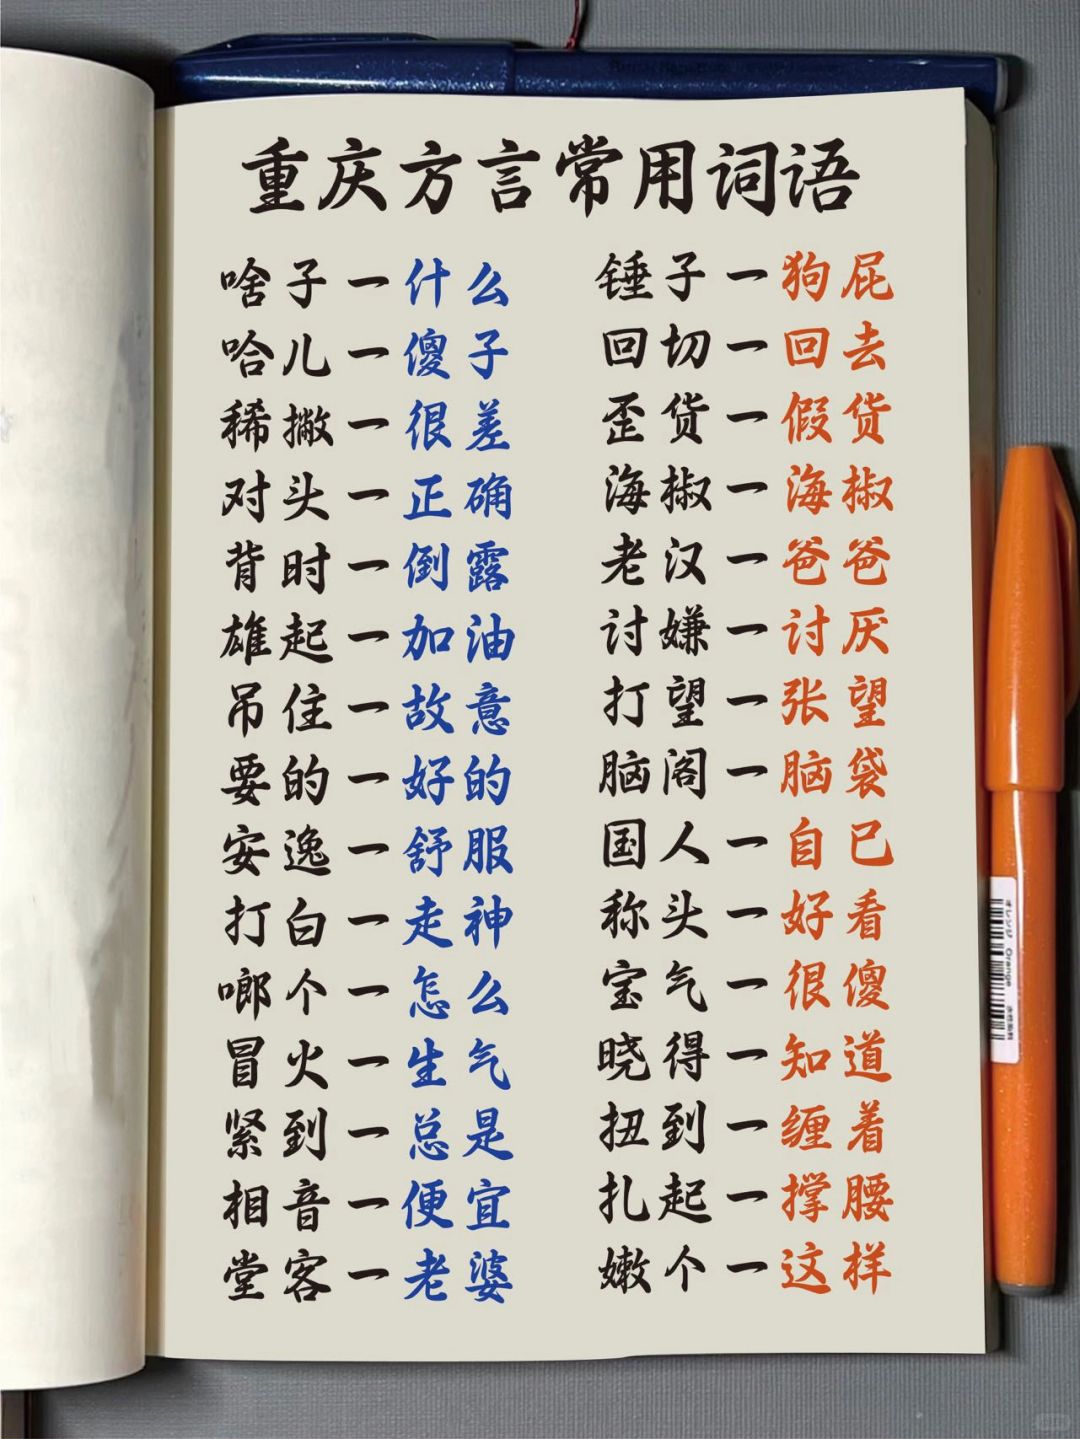 重庆方言常用词语
啥子一什么
哈儿一傻子
稀撇一很差
对头一正确
背时一倒露
雄起一加油
吊住一故意
要的一好的
安逸一舒服
打白一走神
啷个一怎么
冒火一生气
紧到一总是
相音一便宜
堂客一老婆
锤子一狗屁
回切一回去
歪货一假货
海椒一海椒
老汉一爸爸
讨嫌一讨厌
打望一张望
脑阁一脑袋
国人一自已
称头一好看
宝气一很傻
晓得一知道
扭到一缠着
扎起一撑腰
嫩个一这样
オレンジ Orange